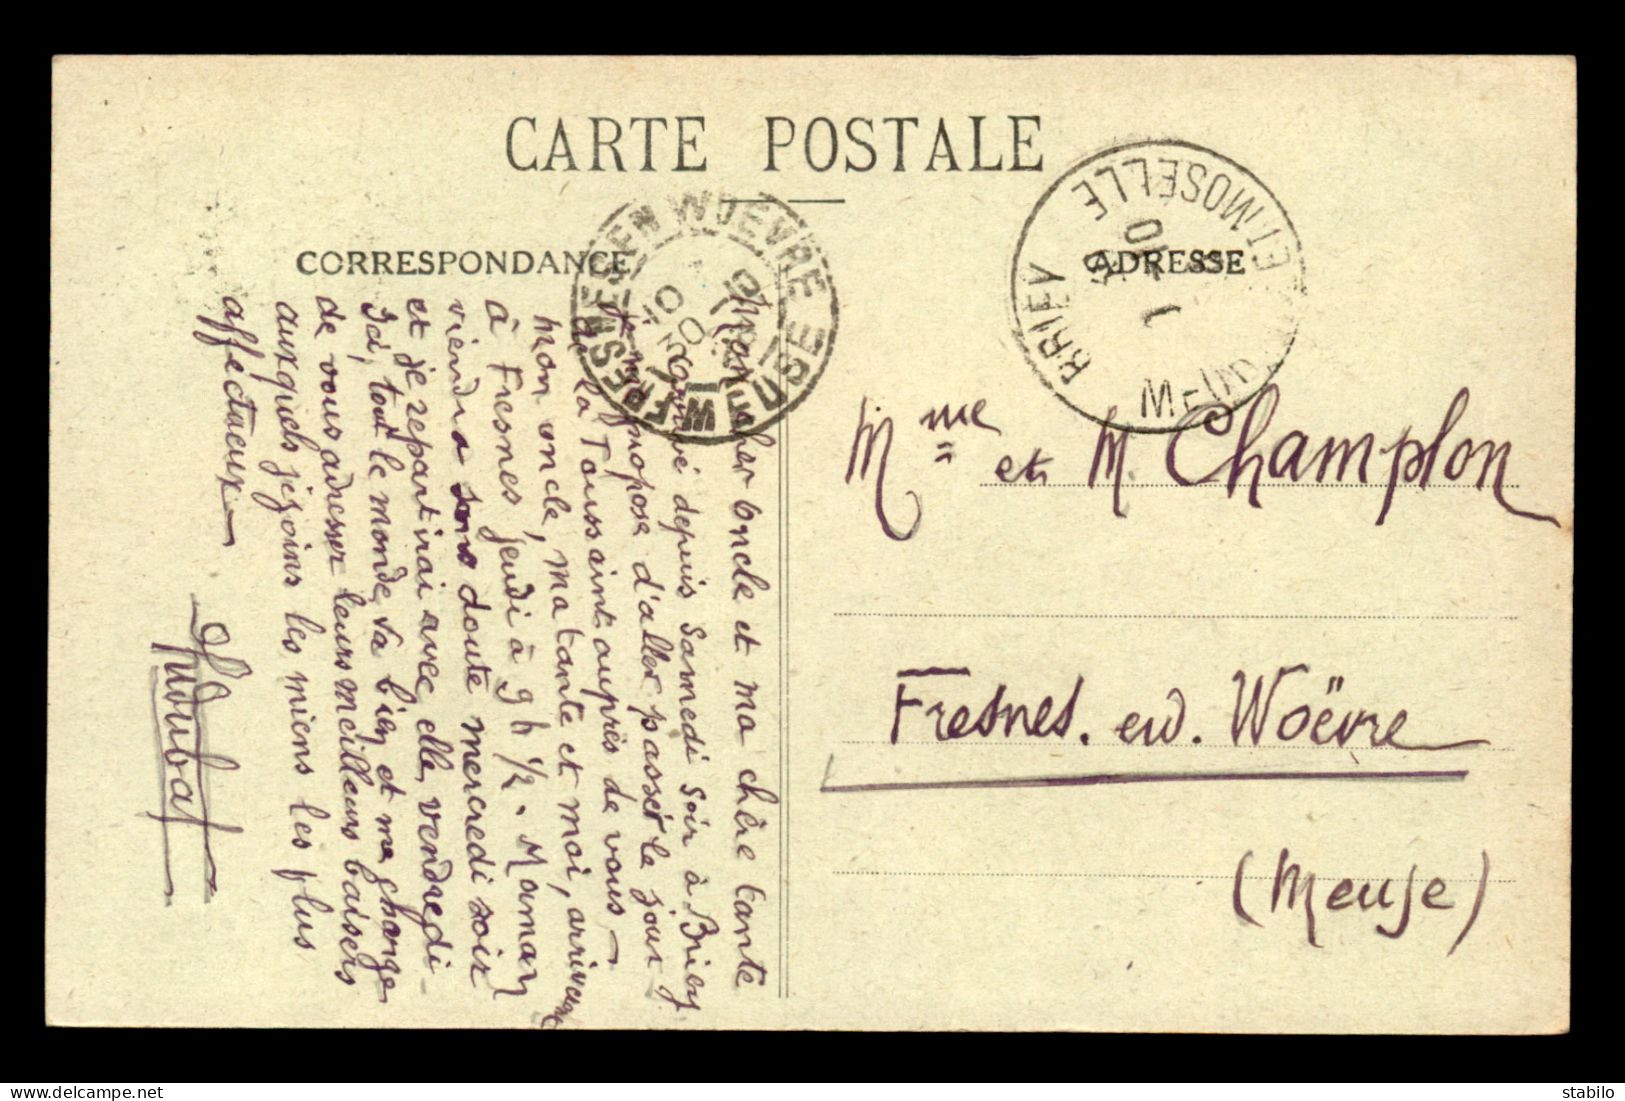 CARTE POSTALE
CORRESPONDANCE
ADRESSE
FRESNES EN WOEVRE
MEUSE
BRIEY
MEURTHE ET MOSELLE
Mon cher oncle et ma chère tante
Arrivé depuis Samedi soir à Briey
je me propose d'aller passer le jour
de la Toussaint auprès de vous —
mon oncle, ma tante et moi, arriverons
à Fresnes jeudi à 9 h 1/2. Maman
viendra sans doute mercredi soir
et je repartirai avec elle vendredi
Ici, tout le monde va bien et me charge
de vous adresser leurs meilleurs baisers
auxquels je joins les miens les plus
affectueux —
Mme et M. Champlon
Fresnes. en. Woëvre
(Meuse)
stabilo